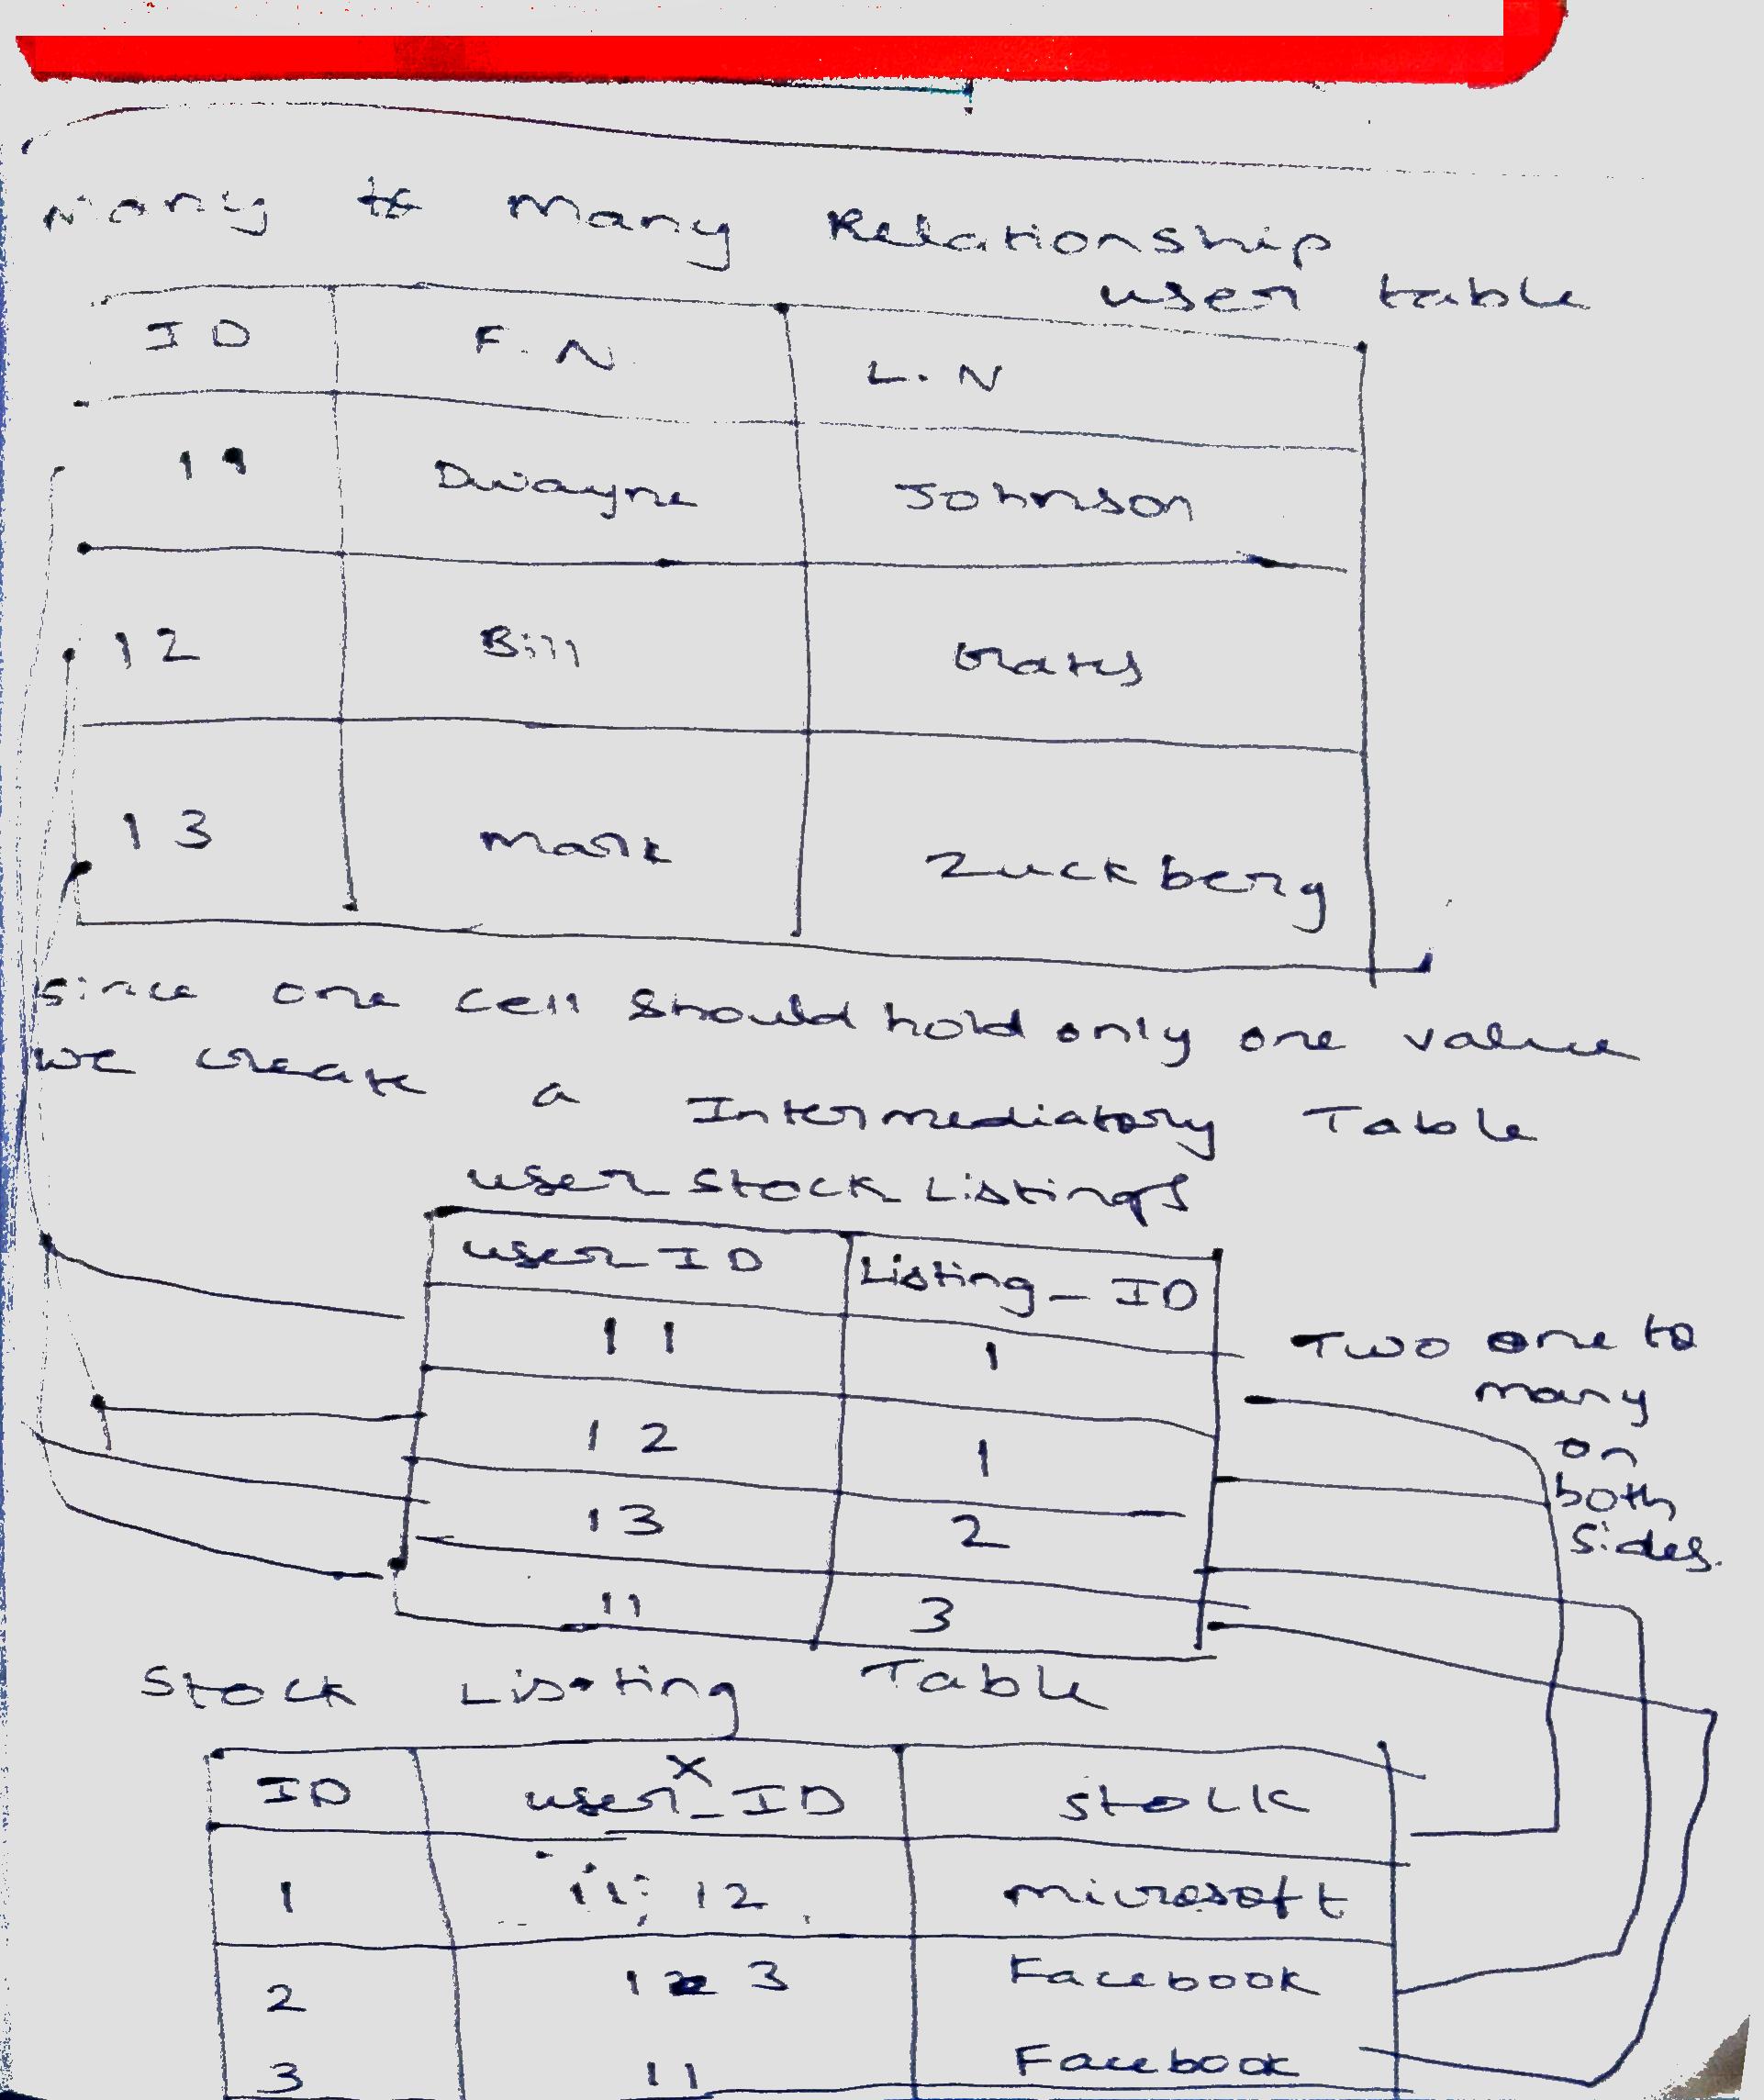 Many to Many Relationship
user table
ID F.N L.N
11 Dwayne Johnson
12 Bill Gates
13 Mark Zuckberg
Since one cell should hold only one value
we create a Intermediatory Table
user stock Listings
user ID Listing_ID
11 1
12 1
13 2
11 3
Two one to
many
on
both
sides.
Stock Listing Table
ID user_ID stock
X
1 11; 12 microsoft
2 3 Facebook
3 11 Facebook